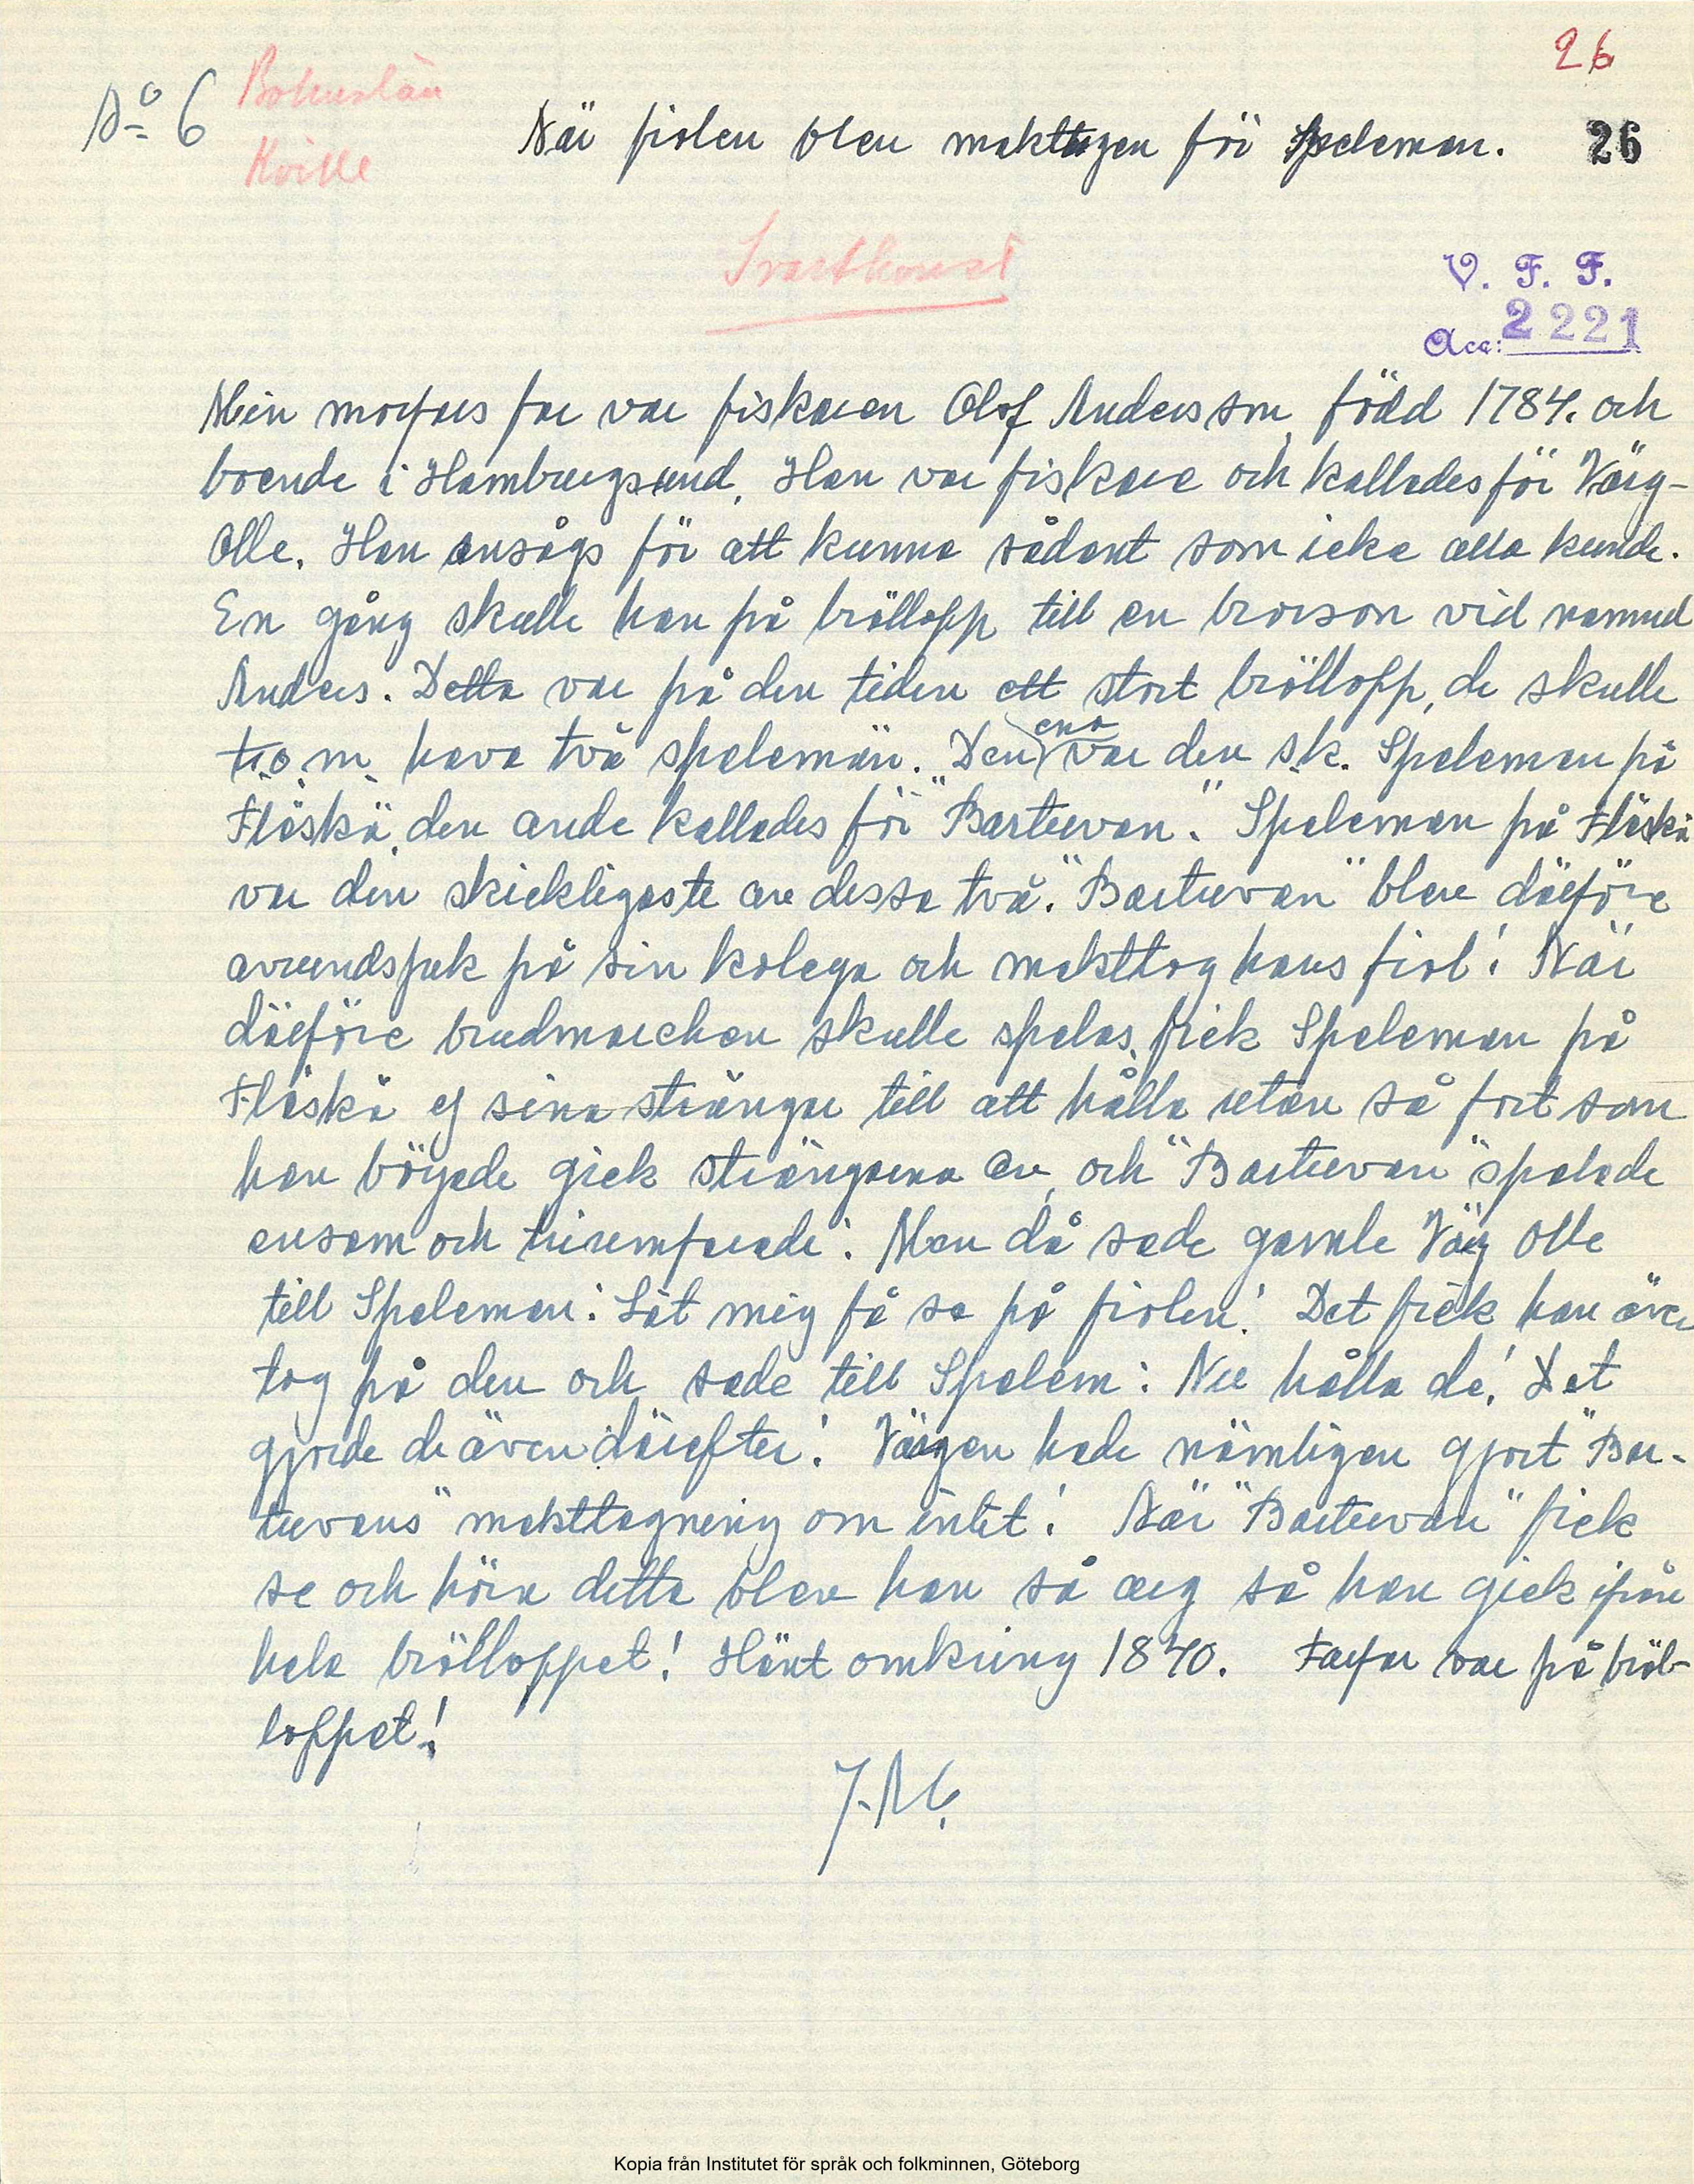 26
No 6 Bohuslän
Kville
När fiolen blev makttagen för Speleman. 26
Svartkonst
V. F. F.
Acc: 2221
Min morfars far var fiskaren Olof Andersson, född 1784. och
boende i Hamburgsund. Han var fiskare och kallades för Varg-
Olle. Han ansågs för att kunna sådant som icke alla kunde.
En gång skulle han på bröllopp till en brorson vid namnd
Anders. Detta var på den tiden ett stort bröllopp, de skulle
t.o.m. hava två spelemän. Den ena var den s.k. Speleman på
Flåskä, den ande kallades för "Bartuvan". Speleman på Flåskä
var den skickligaste av dessa två. "Bartuvan" blev därföre
avundsjuk på sin kolega och makttog hans fiol! När
därföre brudmarchen skulle spelas, fick Speleman på
Flåskä ej sina strängar till att hålla utan så fort som
han böyade gick strängarna av, och "Bartuvan" spelade
ensam och triumfarade! Men då sade gamle Varg Olle
till Speleman: Låt mig få se på fiolen! Det fick han även
tog på den och sade till Spelem: Nu hålla de! Det
gjorde de även därefter! Vargen hade nämligen gjort "Bar-
tuvans" makttagning om intet! När "Bartuvan" fick
se och höra detta blev han så arg så han gick ifrån
hela brölloppet! Hänt omkring 1840. Farfar var på bröl-
loppet!
J.M.
Kopia från Institutet för språk och folkminnen, Göteborg